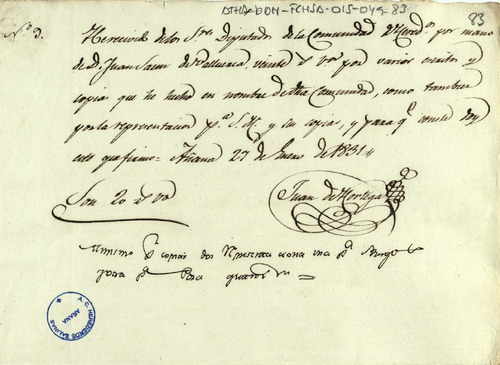 ATHA-DOM-FCHSA-015-049-83
83
Nº 9.
He recivido de los Sres Diputados de la Comunidad de Hered.s por mano
de D. Juan Saenz de Valluerca, veinte rs vn por varios escritos y
copias que he hecho en nombre de dha Comunidad, como tambien
por la representacion pª S.M. y sus copias, y para q.e conste doy
este que firmo = Añana 27 de Enero de 1831
Son 20 rs vn
Juan de Hortiga
copiar dos
para
A.C. HEREDEROS SALINAS
AÑANA